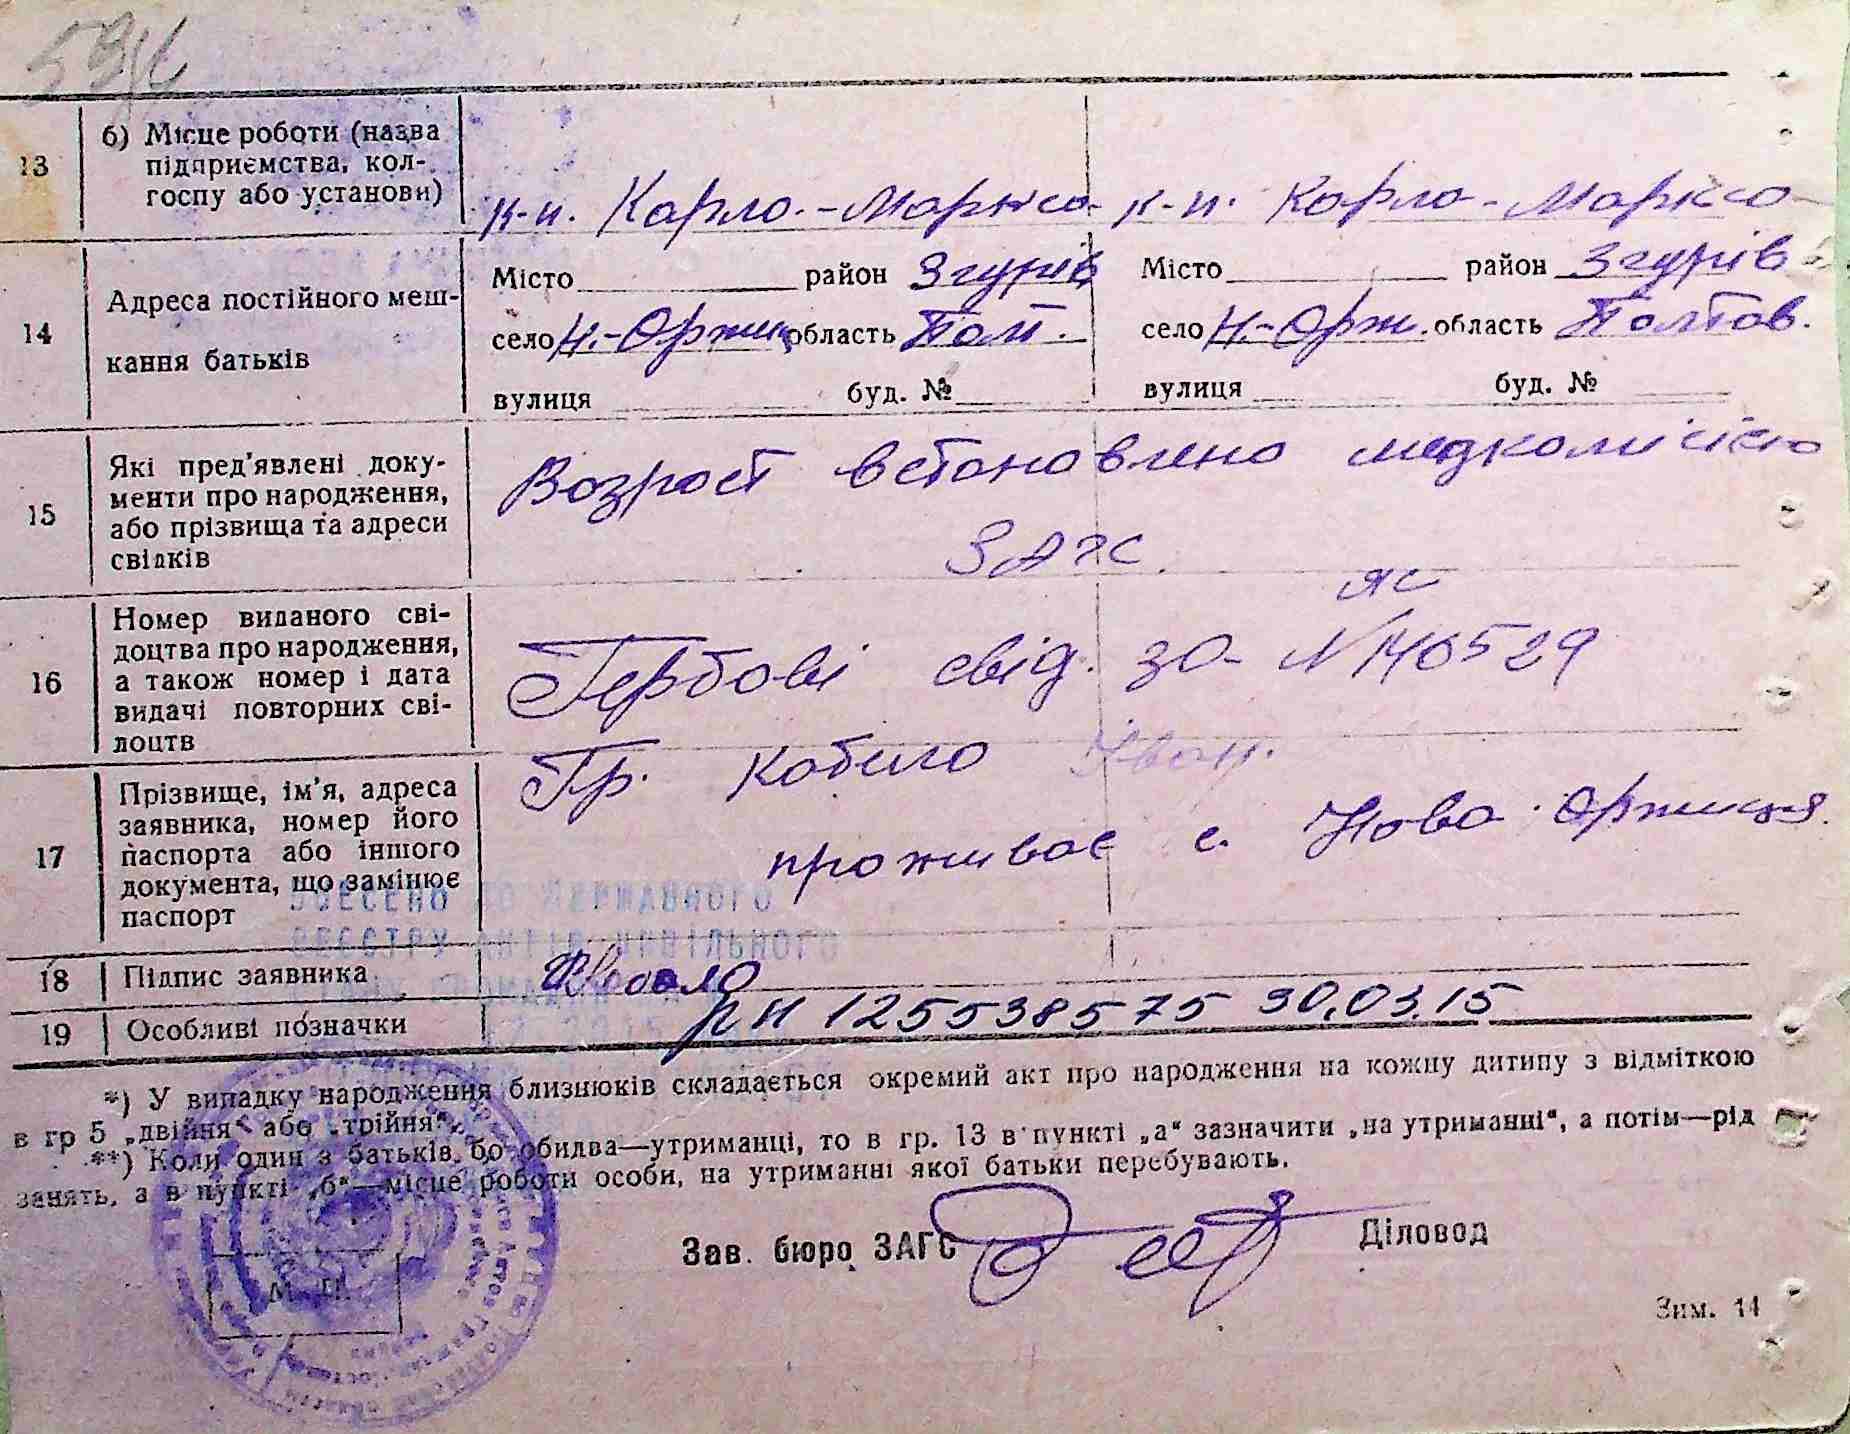 13 б) Місце роботи (назва
підприємства, кол-
госпу або установи)
к-п. Карло-Маркса к-п. Карло-Маркса
14 Адреса постійного меш-
кання батьків
Місто район Згурів Місто район Згурів
село Н.-Оржиц область Полт. село Н.-Орж. область Полтов.
вулиця буд. № вулиця буд. №
15 Які пред'явлені доку-
менти про народження,
або прізвища та адреси
свідків
Возрост встановлено медкомісією
ЗАГС.
16 Номер виданого сві-
доцтва про народження,
а також номер і дата
видачі повторних сві-
доцтв
ЯС
Гербові свід. за N 140529
17 Прізвище, ім'я, адреса
заявника, номер його
паспорта або іншого
документа, що замінює
паспорт
Гр. Кобило Іван.
проживає с. Ново-Оржиця.
ВНЕСЕНО ДО ДЕРЖАВНОГО
РЕЄСТРУ АКТІВ ЦИВІЛЬНОГО
18 Підпис заявника
19 Особливі позначки
РН 125538575 30.03.15
*) У випадку народження близнюків складається окремий акт про народження на кожну дитину з відміткою
в гр 5 „двійня“ або „трійня“.
**) Коли один з батьків, бо обидва—утриманці, то в гр. 13 в пункті „а“ зазначити „на утриманні“, а потім—рід
занять, а в пункті „б“—місце роботи особи, на утриманні якої батьки перебувають.
Зав. бюро ЗАГС Діловод
М. П.
Зим. 14